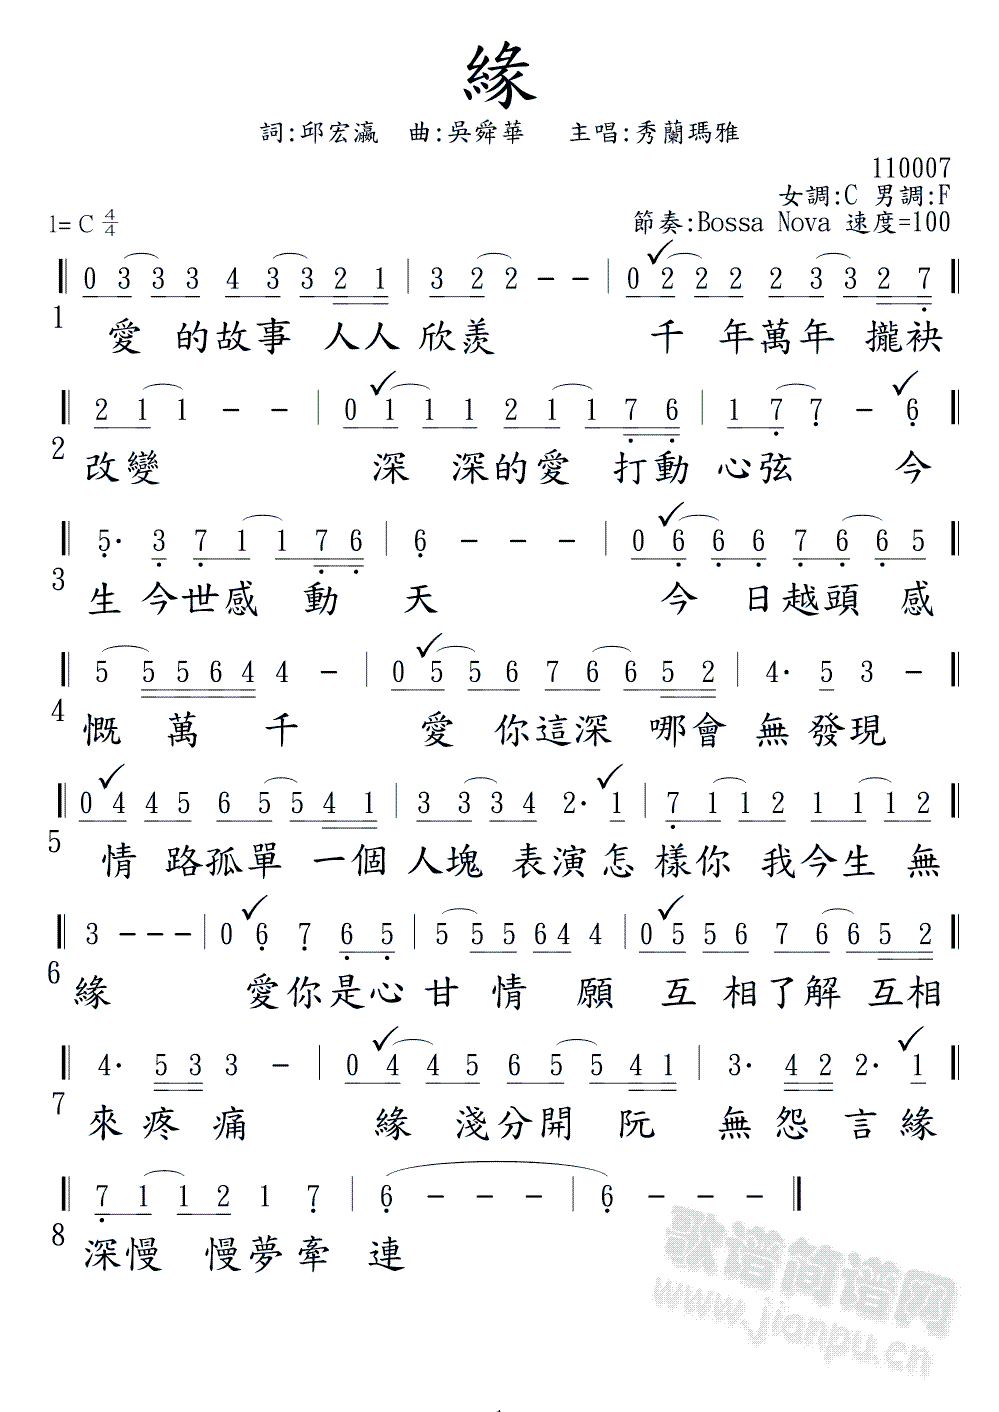 緣
詞:邱宏瀛 曲:吳舜華 主唱:秀蘭瑪雅
110007
女調:C 男調:F
1= C 4/4
節奏:Bossa Nova 速度=100
0 3 3 3 4 3 3 2 1 | 3 2 2 - - | 0 2 2 2 2 3 3 2 7
1 愛 的故事 人人 欣羨 千 年萬年 攏袂
2 1 1 - - | 0 1 1 1 2 1 1 7 6 | 1 7 7 - 6
2 改變 深 深的愛 打動 心弦 今
5· 3 7 1 1 7 6 | 6 - - - | 0 6 6 6 7 6 6 5
3 生 今世感 動 天 今 日越頭 感
5 5 5 6 4 4 - | 0 5 5 6 7 6 6 5 2 | 4· 5 3 -
4 慨 萬 千 愛 你這深 哪會 無發現
0 4 4 5 6 5 5 4 1 | 3 3 3 4 2· 1 | 7 1 1 2 1 1 1 2
5 情 路孤單 一個 人塊 表演怎 樣你 我今生 無
3 - - - | 0 6 7 6 5 | 5 5 5 6 4 4 | 0 5 5 6 7 6 6 5 2
6 緣 愛你是心 甘 情 願 互 相了解 互相
4· 5 3 3 - | 0 4 4 5 6 5 5 4 1 | 3· 4 2 2· 1
7 來 疼 痛 緣 淺分開 阮 無 怨 言緣
7 1 1 2 1 7 | 6 - - - | 6 - - -
8 深慢 慢夢牽 連
歌谱简谱网
www.jianpu.cn